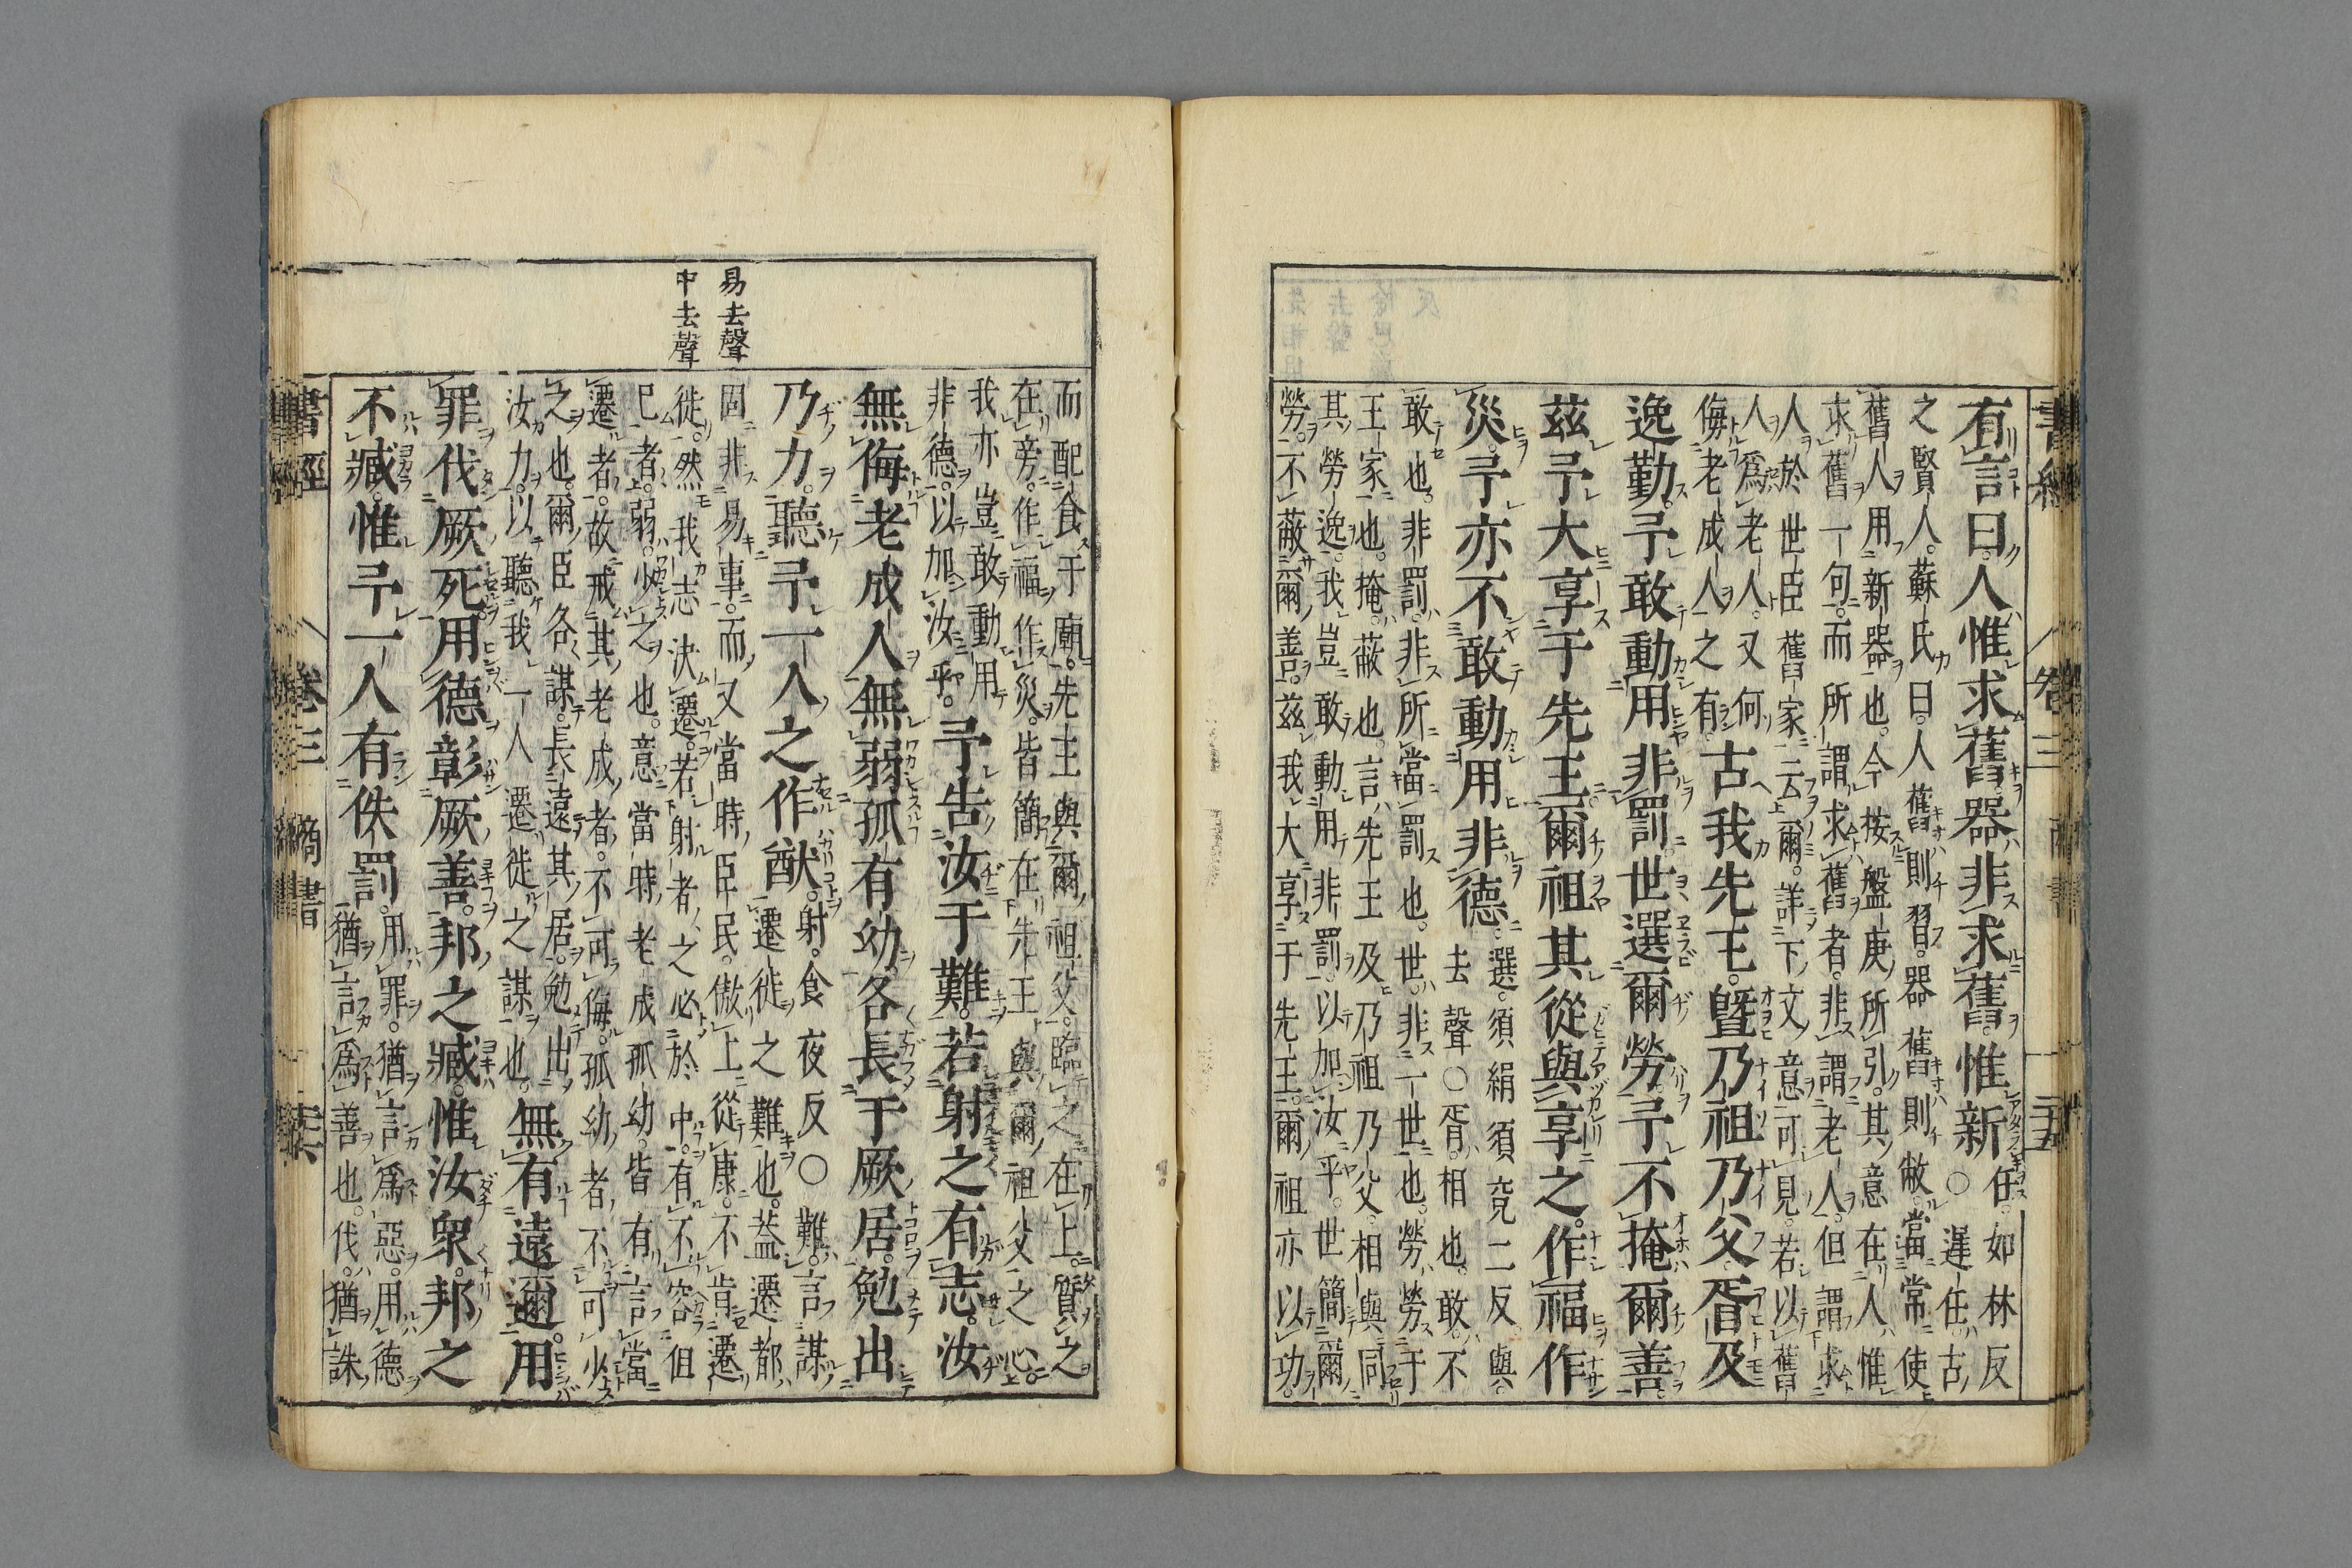 書經 卷三 商書 二十五
有言曰。人惟求舊。器非求舊。惟新。任。如林反
○遲任。古
之賢人。蘇氏曰。人舊則習。器舊則敝。當常使
舊人用新器也。今按盤庚所引。其意在人惟
求舊一句。而所謂求舊者。非謂老人。但謂求
人於世臣舊家云爾。詳下文意可見。若以舊
人爲老人。又何
侮老成人之有。古我先王。曁乃祖乃父。胥及
逸勤。予敢動用非罰。世選爾勞。予不掩爾善。
茲予大享于先王。爾祖其從與享之。作福作
災。予亦不敢動用非德。選。須絹須兗二反。與。
去聲○胥。相也。敢。不
敢也。非罰。非所當罰也。世。非一世也。勞。勞于
王家也。掩。蔽也。言先王及乃祖乃父。相與同
其勞逸。我豈敢動用非罰。以加汝乎。世簡爾
勞。不蔽爾善。茲我大享于先王。爾祖亦以功。
易去聲
中去聲
而配食于廟。先王與爾祖父。臨之在上。質之
在旁。作福作災。皆簡在先王與爾祖父之心。
我亦豈敢動用
非德。以加汝乎。予告汝于難。若射之有志。汝
無侮老成人。無弱孤有幼。各長于厥居。勉出
乃力。聽予一人之作猷。射。食夜反○難。言謀
遷徙之難也。蓋遷都
固非易事。而又當時臣民。傲上從康。不肯遷
徙。然我志決遷。若射者之必於中。有不容但
已者。弱。少之也。意當時老成孤幼。皆有言當
遷者。故戒其老成者。不可侮。孤幼者。不可少
之也。爾臣各謀長遠其居。勉出
汝力。以聽我一人遷徙之謀也。無有遠邇。用
罪伐厥死。用德彰厥善。邦之臧。惟汝衆。邦之
不臧。惟予一人有佚罰。用罪。猶言爲惡。用德。
猶言爲善也。伐。猶誅
書經 卷三 商書